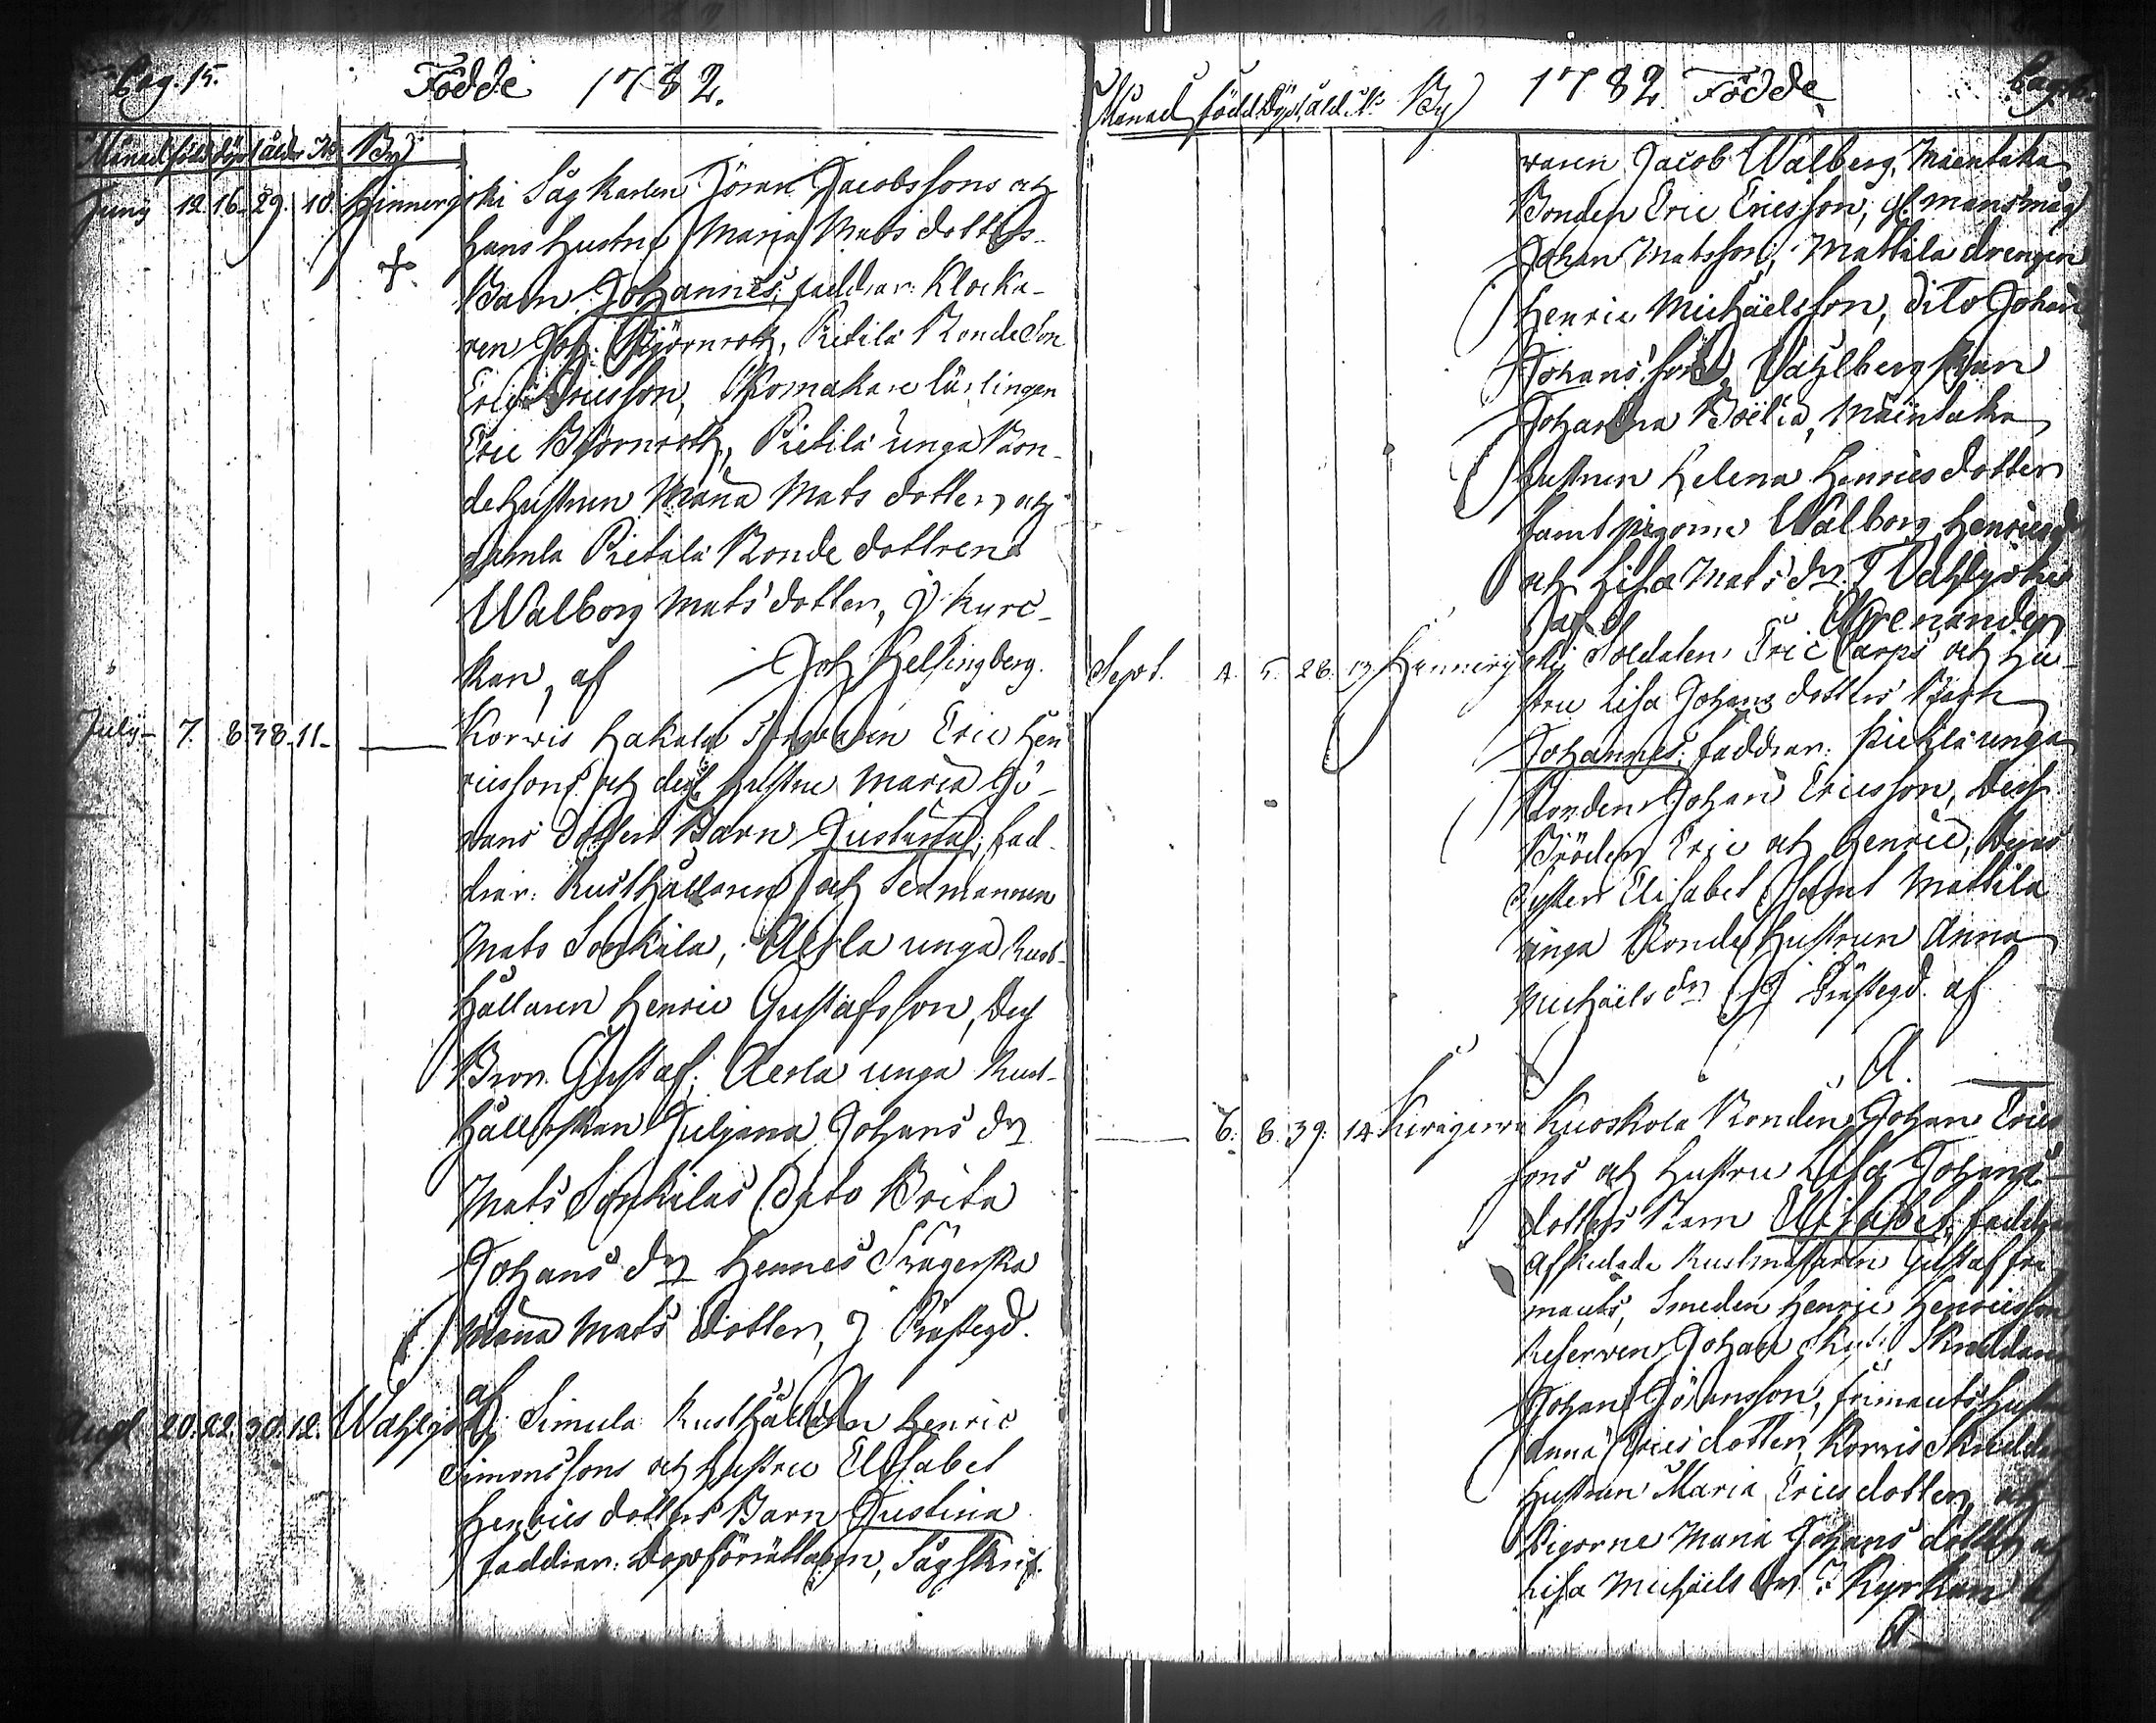 Pag. 15.
Födde 1782.
Månad född döpt ålder No By
Juny 12. 16. 29. 10. Hinnerjoki Sågkarlen Jöran Jacobssons och
hans hustru Maria Mats dotters
Barn Johannes; faddrar: Klocka-
ren Joh: Björnroth, Pietilä Bonde Son
Eric Ericsson, Skomakare lärlingen
Eric Björnroth, Pietilä unga Bon-
dehustrun Maria Mats dotter, och
gamla Pietilä Bonde dottren
Walborg Mats dotter, J Kyrc-
kan, af Joh Helsingberg.
July 7. 8. 38. 11. Korwis Hakala Eric Hen
ricssons och dess hustru Maria Gö-
rans dotters Barn Justina; fad-
drar: Rusthållaren och Sexmannen
Mats Sonkila, Aerla unga Rust-
hållaren Henric Gustafsson, Dess
Bror Gustaf, Aerla unga Rust-
hållerskan Juljana Johans dr
Mats Sonkilas Dito Brita
Johans dr Hennes Svägerska
Maria Mats dotter, J Prästegd.
af
Aug 20. 22. 30. 12. Wahljoki Simula Rusthållaren Henric
Simonssons och hustru Elisabet
Henrics dotters Barn Justina
faddrar: Dopförrättaren, Sågskrif-
Månad född Döpt åld. No By 1782 Födde
waren Jacob Walberg, Mäentaka
Bonden Eric Ericsson, måg
Johan Matsson, Mattila drengen
Henric Michäelsson, Dito Johan
Johansson, Wahlbergskan
Johanna Boëlia, Mäentaka
hustrun Helena Henricsdotter
samt pigorne Walborg Henricsdr
och Lisa Mats dr. J Wahljoki
af Arenander
Sept. 4. 5. 28. 13. Hinnerjoki Soldaten Eric Carps och hu-
stru Lisa Johans dotters Barn
Johannes; faddrar: Pietilä unga
Bonden Johan Ericsson, Dess
Bröder Eric och Henric, Deras
Syster Elisabet samt Mattila
unga Bonde Hustrun Anna
Michäels dr J Prästegd. af
A.
6. 8. 39. 14. Kuoskola Bonden Johan Erics
sons och hustru Lisa Johans
dotters Barn Elisabet; faddrar
Afskedade Rustmästaren Gustaf fri
mauts, Smeden Henric Henricsson
Reserven Johan Skräddaren
Johan Göransson, frimauts hustru
Anna Erics dotter, Korwis Skräddar
Hustrun Maria Erics dotter, och
Pigorne Maria Johans dotter och
Lisa Michäels dr J Kyrkan af
A